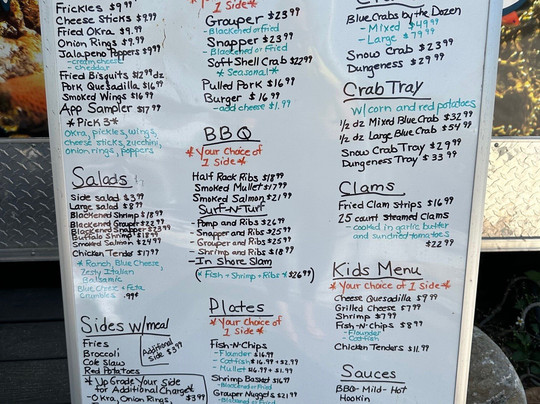 Frickles $9.99
Cheese Sticks $9.99
Fried Okra $9.99
Onion Rings $9.99
Jalapeno Poppers $9.99
- cream cheese
- cheddar
Fried Bisquits $12.99 dz
Pork Quesadilla $16.99
Smoked Wings $16.99
App Sampler $17.99
* Pick 3 *
Okra, pickles, wings,
cheese sticks, zucchini,
onion rings, poppers
Salads
Side salad $3.99
Large salad $8.99
Blackened Shrimp $18.99
Blackened Grouper $22.99
Blackened Snapper $23.99
Buffalo Shrimp $18.99
Smoked Salmon $24.99
Chicken Tenders $17.99
* Ranch, Blue Cheese,
Zesty Italian
Balsamic
Blue Cheese + Feta
Crumbles .99¢
Sides w/meal
Fries
Broccoli
Cole Slaw
Red Potatoes
Additional
Side $3.99
* Up Grade Your Side
for Additional Charge *
- Okra, Onion Rings, $3.99
1 Side *
Grouper $23.99
- Blackened or Fried
Snapper $23.99
- Blackened or Fried
Soft Shell Crab $22.99
* Seasonal *
Pulled Pork $16.99
Burger $16.99
- add cheese $1.99
BBQ
* Your Choice of
1 Side *
Half Rack Ribs $18.99
Smoked Mullet $17.99
Smoked Salmon $21.99
Surf-N-Turf
- Pomp and Ribs $26.99
- Snapper and Ribs $25.99
- Grouper and Ribs $25.99
- Shrimp and Ribs $18.99
- In Shore Slam
(* Fish + Shrimp + Ribs * $26.99)
Plates
* Your Choice of
1 Side *
Fish-N-Chips
- Flounder $16.99
- Catfish $16.99 + $2.99
- Mullet $16.99 + $1.99
Shrimp Basket $16.99
- Blackened or Fried
Grouper Nuggets $21.99
- Blackened or Fried
Blue Crabs by the Dozen
- Mixed $49.99
- Large $79.99
Snow Crab $23.99
Dungeness $29.99
Crab Tray
w/corn and red potatoes
1/2 dz Mixed Blue Crab $32.99
1/2 dz Large Blue Crab $54.99
Snow Crab Tray $29.99
Dungeness Tray $33.99
Clams
Fried Clam Strips $16.99
25 count steamed Clams
- cooked in garlic butter
and sundried tomatoes
$22.99
Kids Menu
* Your Choice of 1 Side *
Cheese Quesadilla $9.99
Grilled Cheese $7.99
Shrimp $7.99
Fish-N-Chips $8.99
- Flounder
- Catfish
Chicken Tenders $11.99
Sauces
BBQ- Mild - Hot
Hookin